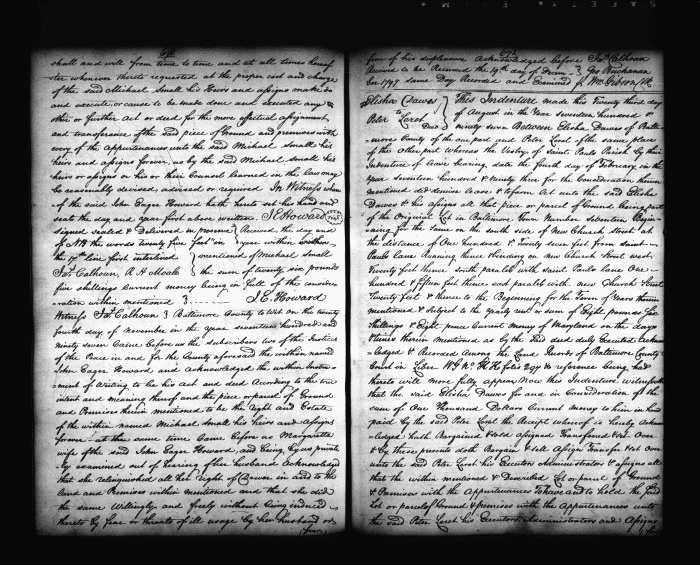 shall and will from time to time and at all times hereaf
ter whenever thereto requested at the proper cost and charge
of the said Michael Small his Heirs and assigns make do
and execute or cause to be made done and executed any
other or further Act or deed for the more effectual assignment
and transferance of the said piece of Ground and premises with
every of the appurtenances unto the said Michael Small his
heirs and assigns forever, as by the said Michael Small his
heirs or assigns or his or their Counsel learned in the law may
be reasonably devised, advised or required In Witness where
of the said John Eager Howard hath hereto set his hand and
seal the day and year first above written J E Howard
signed sealed & Delivered in presence Received the day and
of NB the words twenty five feet in year within written
the 17th line first interlined mentioned of Michael Small
Jas. Calhoun, R H Moale the sum of twenty six pounds
five shillings Current money being in full of the conside
ration within mentioned J. E. Howard
Witness Jas. Calhoun Baltimore County to Wit on the twenty
fourth day of november in the year seventeen hundred and
Ninety seven Came before us the subscribers two of the Justices
of the Peace in and for the County aforesaid the within named
John Eager Howard and acknowledged the within Instru
ment of Writing to be his act and deed According to the true
intent and meaning thereof and the piece or parcel of Ground
and Premises therein mentioned to be the right and Estate
of the within named Michael Small his heirs and assigns
forever at the same time Came before us Margaretta
wife of the said John Eager Howard, and being by us private
ly examined out of hearing of her husband Acknowledged
that she relinquished all her right of Dower in and to the
land and Premises within mentioned and that she did
the same Willingly and freely without being induced
thereto by fear or threats of ill usage by her husband or
(fear)
671
fear of his displeasure Acknowledged before Jas Calhoun
Received to be Recorded the 19th day of Decem Geo Buchanan
ber 1797 same Day Recorded and Examined Wm Gibson Clk
Elisha Dawes This Indenture made this Twenty third day
to of August in the Year seventeen hundred &
Peter Loret ninety seven Between Elisha Dawes of Balti
Deed
more County of the one part and Peter Loret of the same place
of the other part whereas the Vestry of Saint Pauls Parish by their
Indenture of lease bearing date the fourth day of February in the
Year seventeen hundred & Ninety three for the Consideration therein
mentioned did demise lease & to farm let unto the said Elisha
Dawes & his assigns all that piece or parcel of Ground being part
of the Original Lot in Baltimore Town Number Seventeen Begin
ning for the same on the south side of New Church Street at
the distance of One hundred & Twenty seven feet from saint
Pauls lane Running thence bounding on New Church Street west
Twenty feet thence south parallel with saint Pauls lane One
hundred & fifteen feet thence east parallel with new Church Street
Twenty feet & thence to the Beginning for the Term of Years therein
mentioned & subject to the yearly rent or sum of Eight pounds
shillings & Eight pence Current money of Maryland on the days
& times therein mentioned as by the said deed duly Executed Acknow
ledged & Recorded Among the Land Records of Baltimore County
Court in Liber W G No H H folio 297 reference being had
thereto will more fully appear Now this Indenture witnesseth
that the said Elisha Dawes for and in Consideration of the
sum of One Thousand Dollars Current money to him in hand
paid by the said Peter Loret the Receipt whereof is hereby Acknow
ledged hath Bargained & sold assigned Transfered & set Over
& by these presents doth Bargain & sell Assign Transfer & set Over
unto the said Peter Loret his Executors Administrators & assigns all
that the within mentioned & Described Lot or parcel of Ground
& Premises with the Appurtenances To have and to hold the said
Lot or parcel of Ground & premises with the Appurtenances unto
the said Peter Loret his Executors Administrators and Assigns